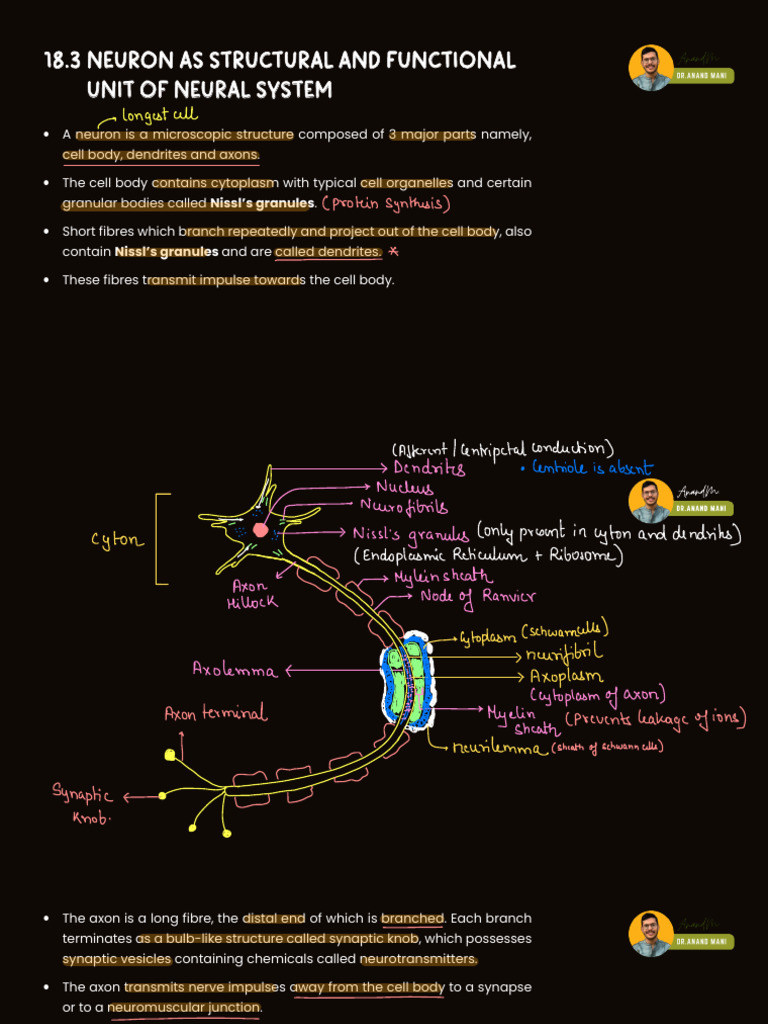 18.3 NEURON AS STRUCTURAL AND FUNCTIONAL
UNIT OF NEURAL SYSTEM
AnandM
DR.ANAND MANI
longest cell
• A neuron is a microscopic structure composed of 3 major parts namely,
cell body, dendrites and axons.
• The cell body contains cytoplasm with typical cell organelles and certain
granular bodies called Nissl's granules. (Protein Synthesis)
• Short fibres which branch repeatedly and project out of the cell body, also
contain Nissl's granules and are called dendrites. *
• These fibres transmit impulse towards the cell body.
(Afferent / Centripetal conduction)
Dendrites
• Centriole is absent
Nucleus
AnandM
DR.ANAND MANI
Neurofibrils
Nissl's granules (only present in cyton and dendrites)
Cyton
(Endoplasmic Reticulum + Ribosome)
Axon
Hillock
Mylein sheath
Node of Ranvier
Cytoplasm (schwann cells)
neurifibril
Axolemma
Axoplasm
(cytoplasm of axon)
Axon terminal
Myelin
sheath
(Prevents leakage of ions)
neurilemma (sheath of schwann cells)
Synaptic
Knob.
• The axon is a long fibre, the distal end of which is branched. Each branch
terminates as a bulb-like structure called synaptic knob, which possesses
synaptic vesicles containing chemicals called neurotransmitters.
AnandM
DR.ANAND MANI
• The axon transmits nerve impulses away from the cell body to a synapse
or to a neuromuscular junction.